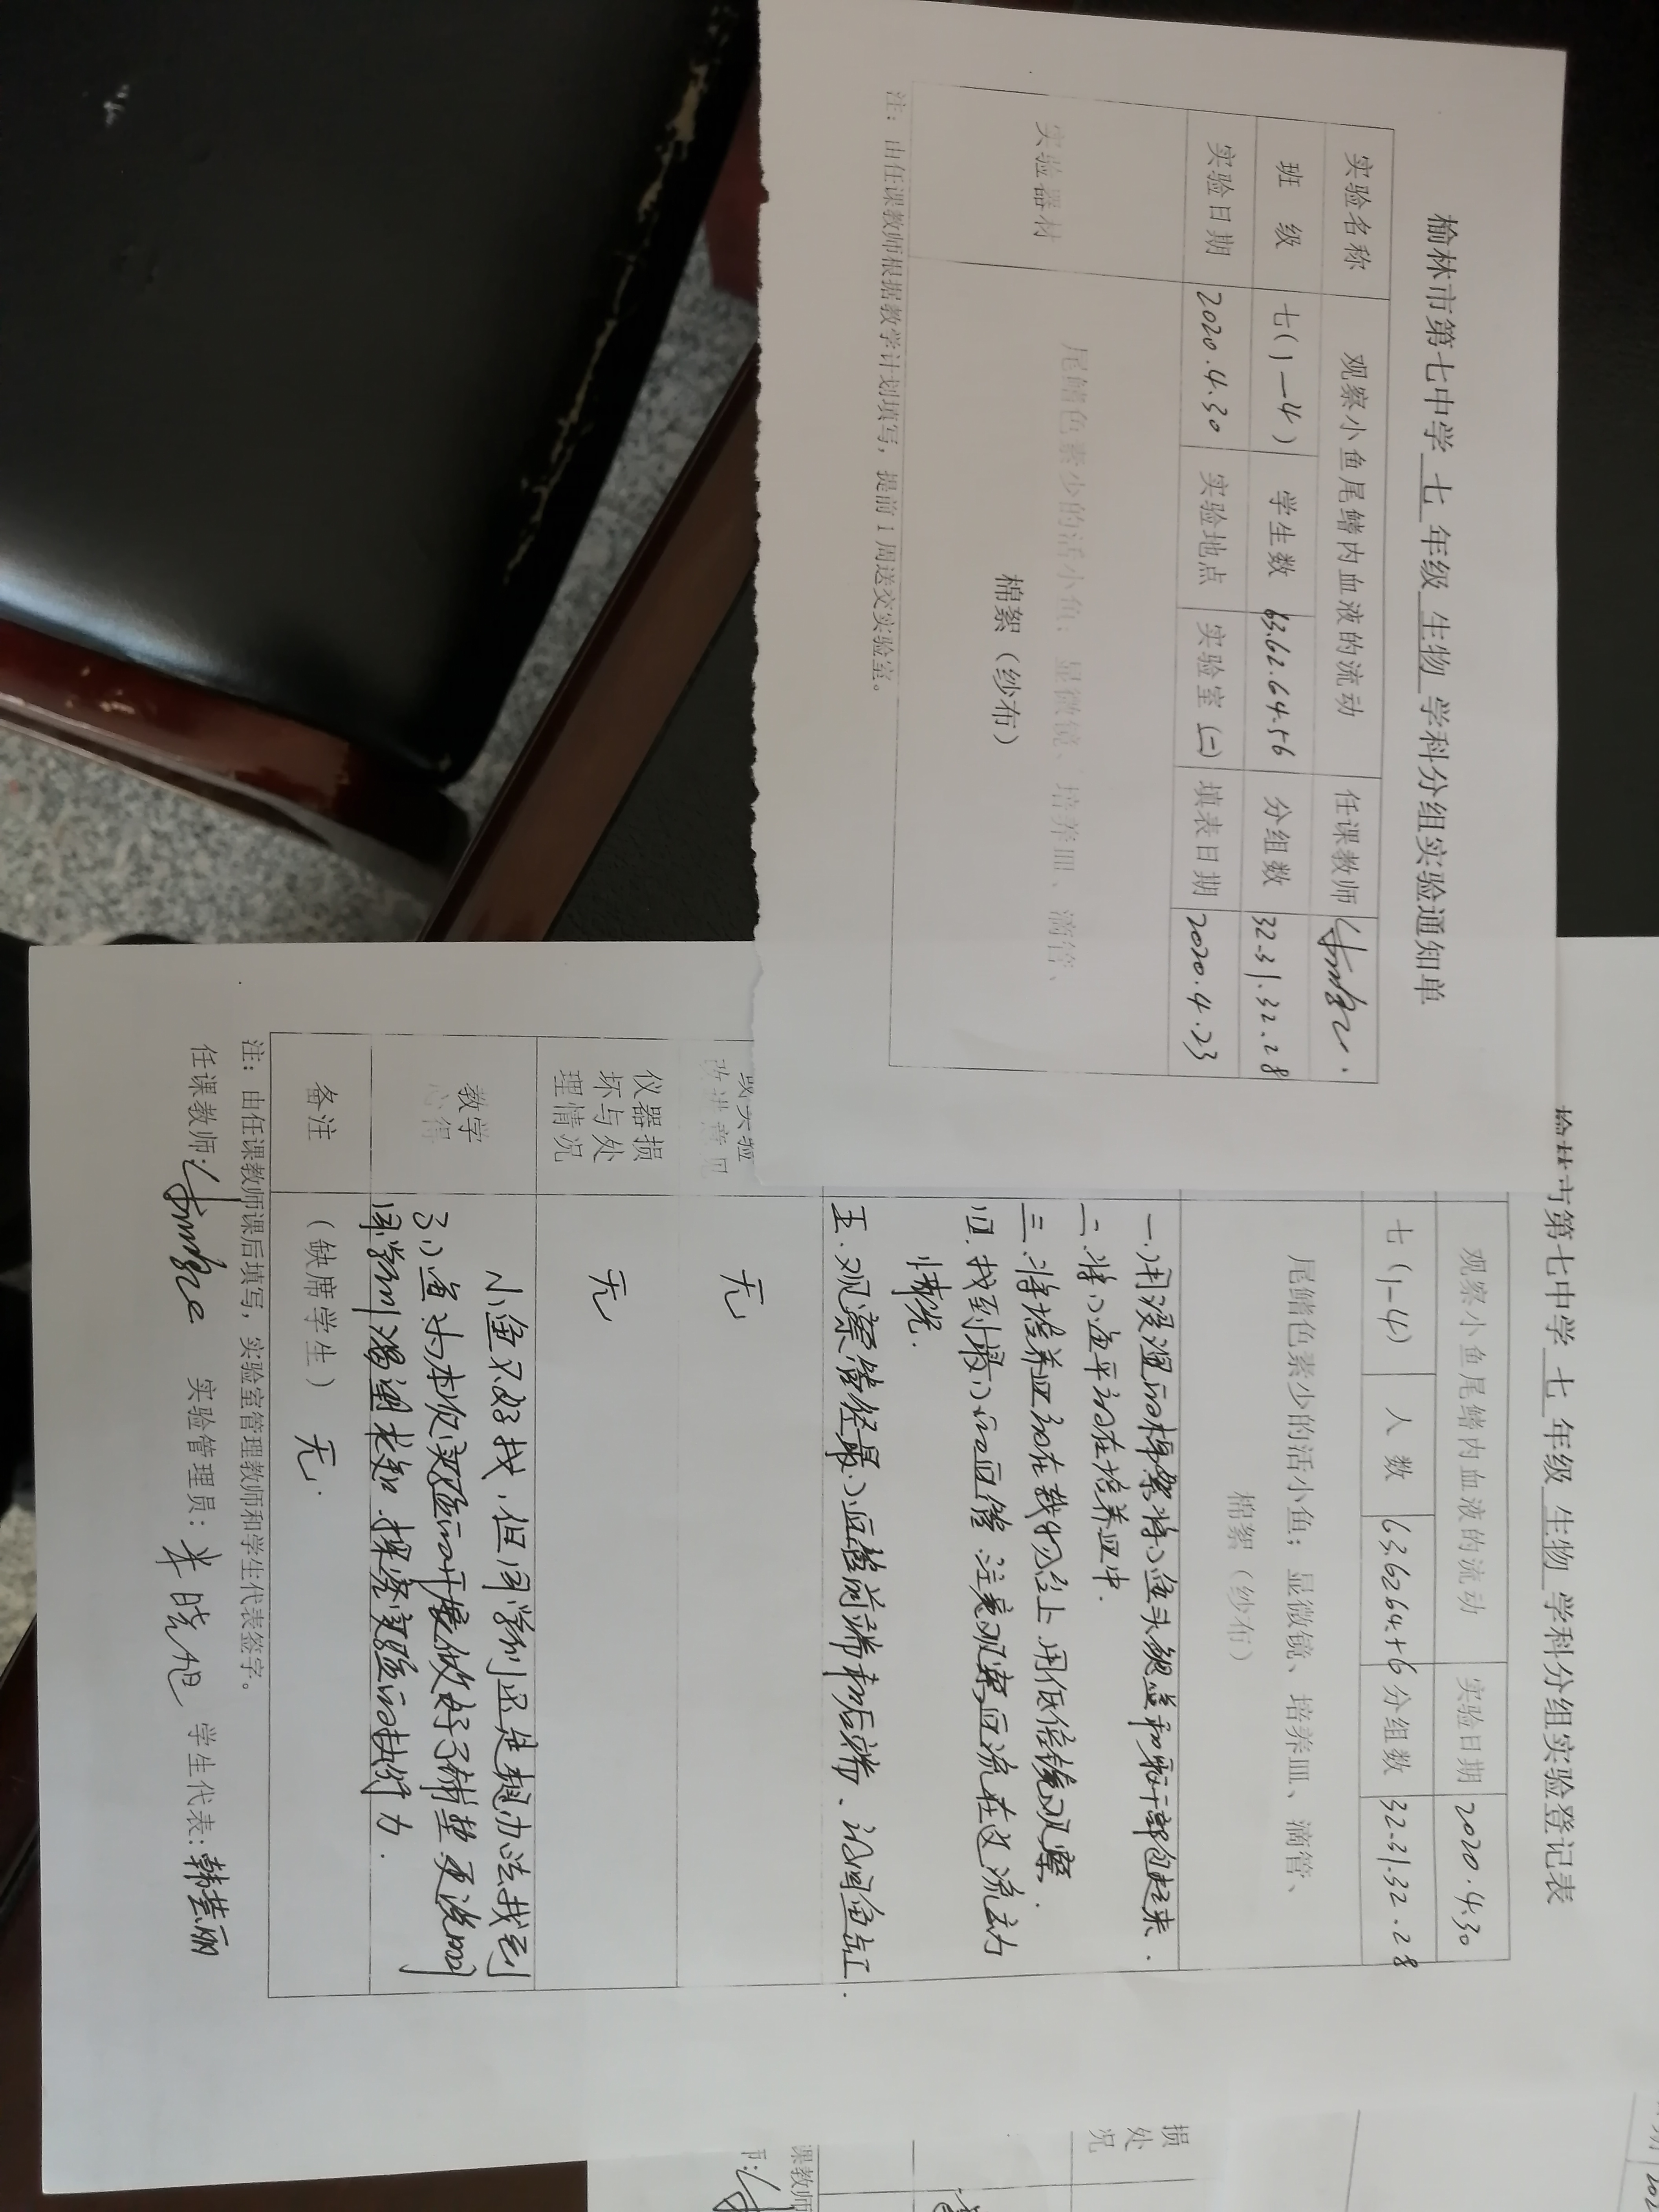 榆林市第七中学 七 年级 生物 学科分组实验通知单
实验名称 观察小鱼尾鳍内血液的流动 任课教师
班 级 七(1-4) 学生数 63.62.64.56 分组数 32.31.32.28
实验日期 2020.4.30 实验地点 实验室(二) 填表日期 2020.4.23
实验器材 尾鳍色素少的活小鱼；显微镜、培养皿、滴管、
棉絮（纱布）
注：由任课教师根据教学计划填写，提前1周送交实验室。
榆林市第七中学 七 年级 生物 学科分组实验登记表
观察小鱼尾鳍内血液的流动 实验日期 2020.4.30
七(1-4) 人 数 63.62.64.56 分组数 32.31.32.28
尾鳍色素少的活小鱼；显微镜、培养皿、滴管、
棉絮（纱布）
一.用浸湿的棉絮将小鱼头鳃盖和躯干部包起来.
二.将小鱼平放在培养皿中.
三.将培养皿放在载物台上.用低倍镜观察.
四.找到最小的血管.注意观察血流在这流动
情况.
五.观察管径最小血管前端和后端、认问鱼缸.
改进意见 无
仪器损
坏与处
理情况
无
教学
心得
小鱼不好找，但同学们还是想办法找到
了小鱼为本次实验的开展做好了铺垫.更说明
同学们渴望求知.探索实验的执行力.
备注 （缺席学生） 无.
注：由任课教师课后填写，实验室管理教师和学生代表签字。
任课教师: 实验管理员: 晓旭 学生代表: 韩慧丽
损
处
况
课教师